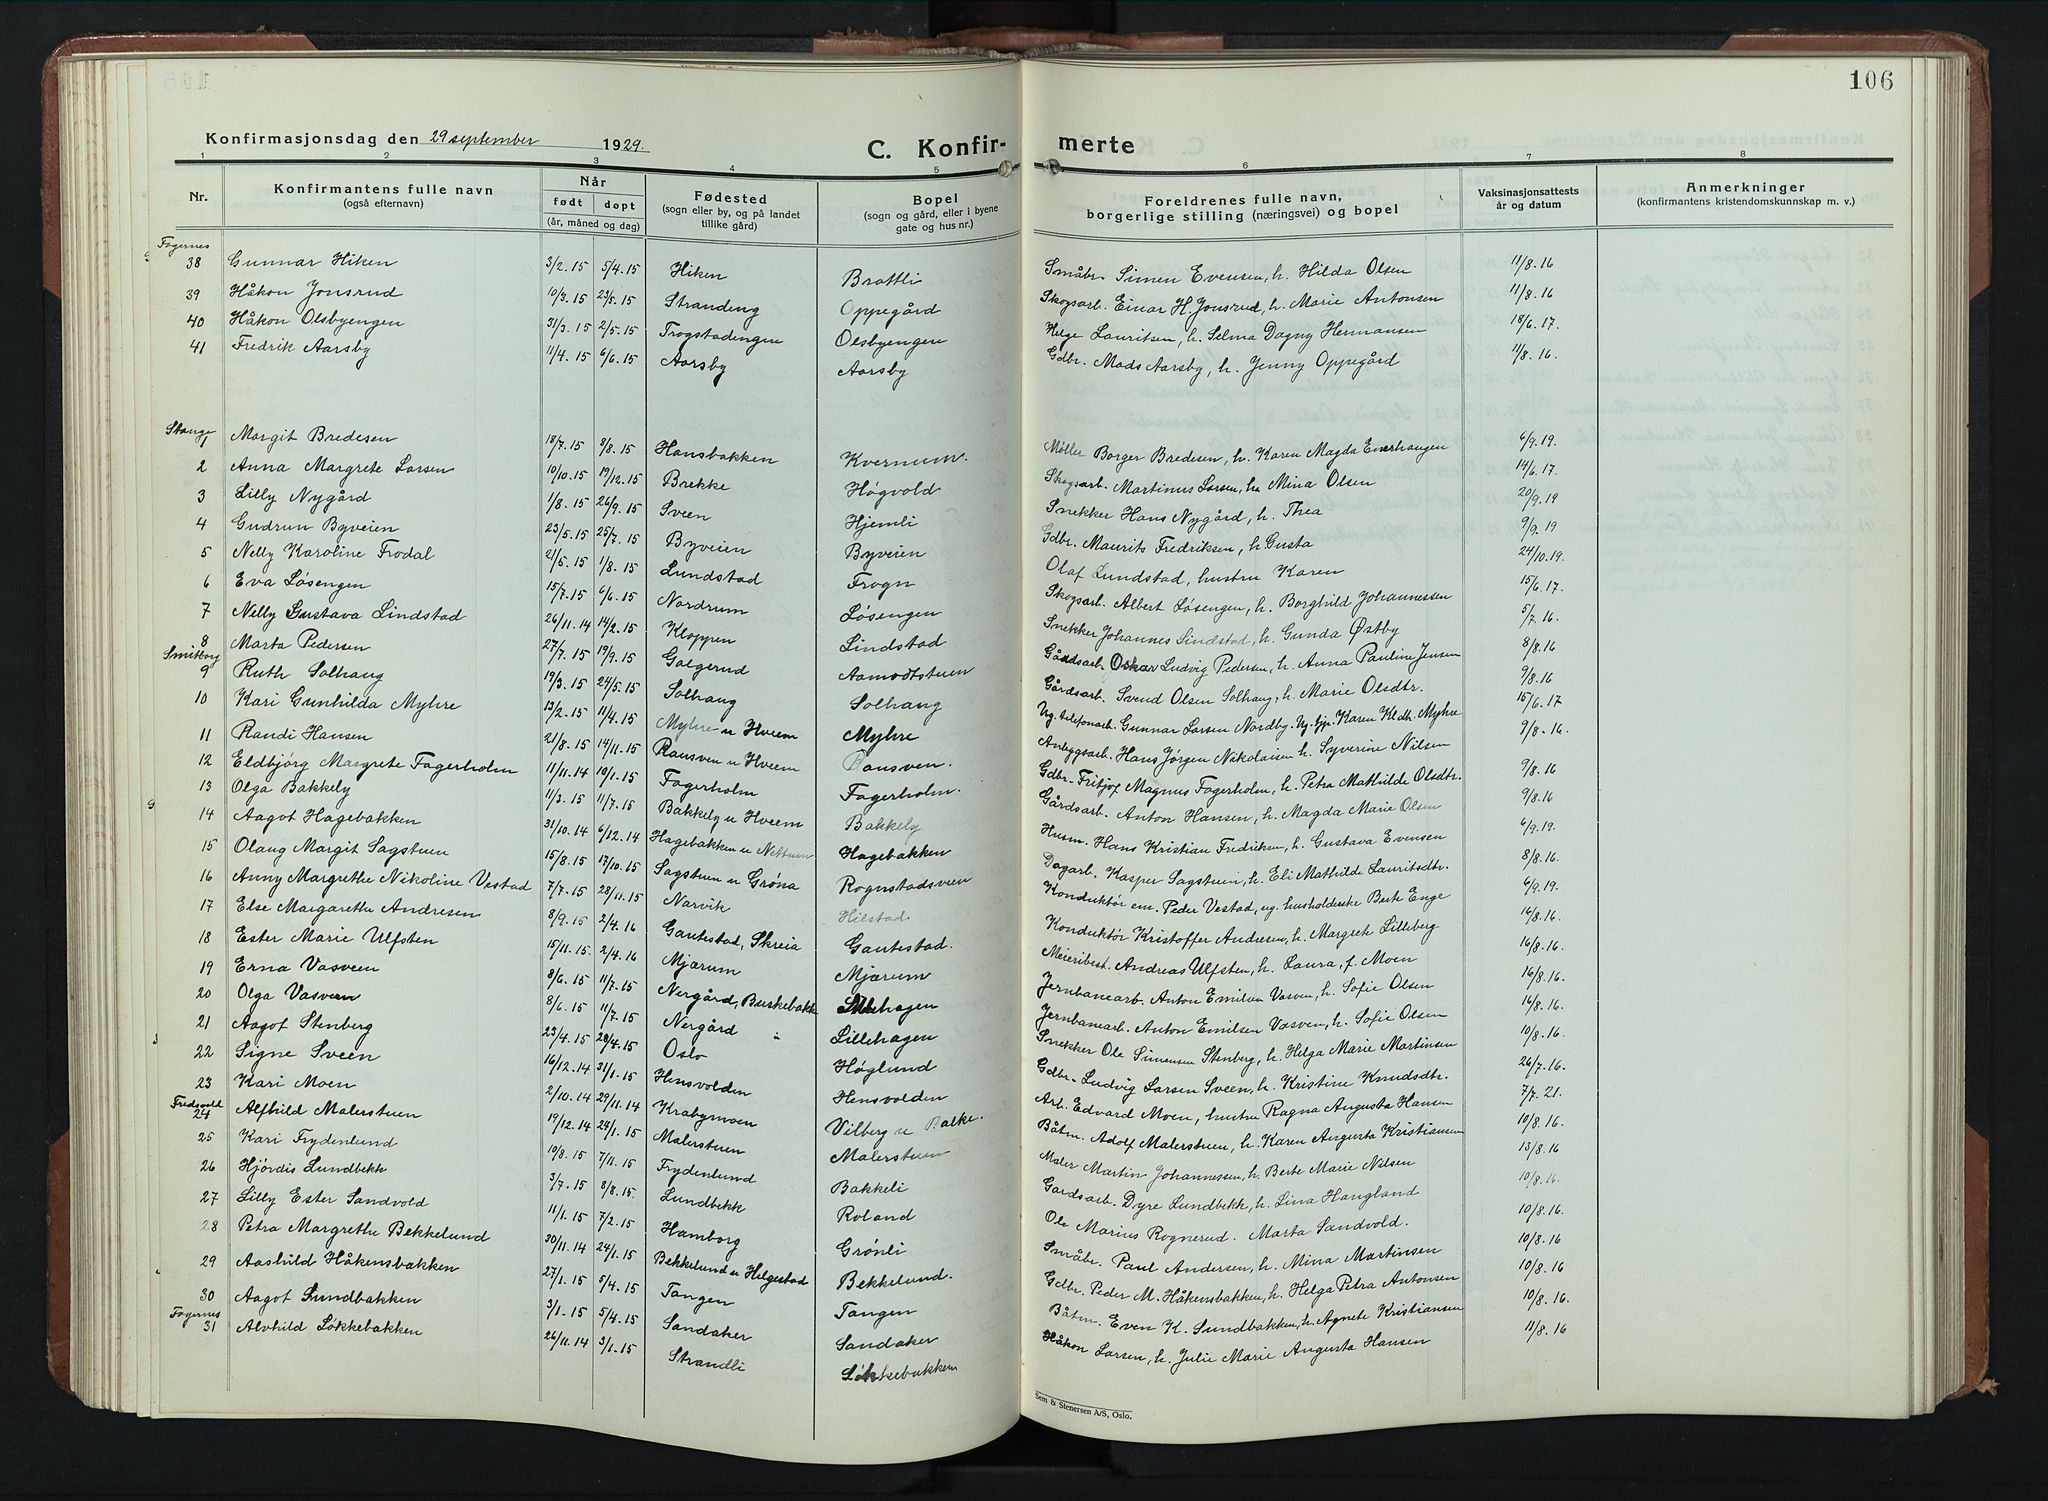 106
Konfirmasjonsdag den 29 september 1929.
C. Konfir- merte
1 2 3 4 5 6 7 8
Nr. Konfirmantens fulle navn (også efternavn) Når født døpt (år, måned og dag) Fødested (sogn eller by, og på landet tillike gård) Bopel (sogn og gård, eller i byene gate og hus nr.) Foreldrenes fulle navn, borgerlige stilling (næringsvei) og bopel Vaksinasjonsattests år og datum Anmerkninger (konfirmantens kristendomskunnskap m. v.)
Fagernes
38 Gunnar Hiken 3/2.15 5/4.15 Hiken Brattli Småbr. Simen Evensen, h. Hilda Olsen 11/8.16
39 Håkon Jonsrud 10/3.15 23/5.15 Strandeng Oppegård Skogsarb. Einar H. Jonsrud, h. Marie Antonsen 11/8.16
40 Håkon Olsbyengen 31/3.15 2/5.15 Trogstadengen Olsbyengen Helge Lauritsen, h. Selma Dagny Hermansen 18/6.17.
41 Fredrik Aarsby 11/4.15 6/6.15 Aarsby Aarsby Gdbr. Mads Aarsby, h. Jenny Oppegård 11/8.16.
Stange
1 Margit Bredesen 18/7.15 8/8.15 Hansbakken Kvernum. Møller Borger Bredesen, h. Karen Magda Enerhaugen 6/9.19.
2 Anna Margrete Larsen 10/10.15 19/12.15 Brekke Høgvold Skogsarb. Martinus Larsen, h. Mina Olsen 14/6.17.
3 Lilly Nygård 1/8.15 26/9.15 Sveen Hjemli Snekker Hans Nygård, h. Thea 20/9.19
4 Gudrun Byveien 23/5.15 25/7.15 Byveien Byveien Gdbr. Maurits Fredriksen, h. Gusta 9/9.19
5 Nelly Karoline Frodal 21/5.15 1/8.15 Lundstad Frogn Olaf Lundstad, hustru Karen 24/10.19.
6 Eva Løsengen 15/7.15 6/6.15 Nordrum Løsengen Skogsarb. Albert Løsengen, h. Borghild Johannessen 15/6.17.
7 Nelly Gustava Lindstad 26/11.14 14/2.15 Kloppen Lindstad Snekker Johannes Lindstad, h. Gunda Østby 5/7.16.
8 Marta Pedersen 27/7.15 19/9.15 Galgerud Aamodtstuen Gårdsarb. Oskar Ludvig Pedersen, h. Anna Pauline Jensen 8/8.16
Smitborg
9 Ruth Solhaug 19/3.15 24/5.15 Solhaug Solhaug Gårdsarb. Svend Olsen Solhaug, h. Marie Olsdtr. 9/8.16
10 Kari Gunhilda Myhre 13/2.15 11/4.15 Myhre u Hveem Myhre Ug. telefonarb. Gunnar Larsen Nordby. Ug. tjp. Karen Kldtr. Myhre 15/6.17
11 Randi Hansen 21/8.15 14/11.15 Ransven u Hveem Ransven. Anleggsarb. Hans Jørgen Nikolaisen h. Syverine Nilsen 9/8.16.
12 Eldbjørg Margrete Fagerholm 11/11.14 10/1.15 Fagerholm Fagerholm. Gdbr. Fritjof Magnus Fagerholm, h. Petra Mathilde Olsdtr. 9/8.16
13 Olga Bakkely 11/3.15 11/7.15 Bakkely u Hveem Bakkely Gårdsarb. Anton Hansen, h. Magda Marie Olsen 9/8.16
14 Aagot Hagebakken 31/10.14 6/12.14 Hagebakken u Nettum Hagebakken Husm. Hans Kristian Fredriksen, h. Gustava Evensen 6/9.19.
15 Olaug Margit Sagstuen 15/8.15 17/10.15 Sagstuen u Grøna Rognstadsveen Dagarb. Kasper Sagstuen, h. Eli Mathilde Lauritsdtr. 8/8.16.
16 Anny Margrethe Nikoline Vestad 7/7.15 28/11.15 Narvik Hilstad. Konduktør em. Peder Vestad, ug. husholderske Berte Enge 6/9.19.
17 Else Margarethe Andresen 8/9.15 2/4.16 Gautestad, Skreia Gautestad. Konduktør Kristoffer Andresen, h. Margrete Lilleberg 16/8.16.
18 Ester Marie Ulfsten 15/11.15. 2/4.16 Mjørum Mjørum Meieribest. Andreas Ulfsten, h. Laura, f. Moen 16/8.16.
19 Erna Vasveen 8/6.15 11/7.15 Nergård, Buskebakk Lillehagen Jernbanearb. Anton Emilsen Vasven, h. Sofie Olsen 16/8.16.
20 Olga Vasveen 8/6.15 11/7.15 Nergård " Lillehagen Jernbanearb. Anton Emilsen Vasven, h. Sofie Olsen 16/8.16
21 Aagot Stenberg 23/4.15 28/4.15 Oslo Høglund Snekker Ole Simensen Stenberg, h. Helga Marie Martinsen 10/8.16.
22 Signe Sveen 16/12.14 31/1.15 Hensvolden Hensvolden Gdbr. Ludvig Larsen Sveen, h. Kristine Knudsdtr. 26/7.16.
23 Kari Moen 2/10.14 29/11.14 Krabymoen Vilberg u Balke. Arb. Edvard Moen, hustru Ragna Augusta Hansen 7/7.21.
Fredsvold
24 Alfhild Malerstuen 19/12.14 24/1.15 Malerstuen Malerstuen Båtm. Adolf Malerstuen, h. Karen Augusta Kristiansen 10/8.16.
25 Kari Frydenlund 10/8.15 7/11.15 Frydenlund Bakkeli Maler Martin Johannessen, h. Berte Marie Nilsen 13/8.16
26 Hjördis Lundbekk 3/7.15 8/8.15. Lundbekk Roland Gardsarb. Dyre Lundbekk, h. Lina Haugland 10/8.16.
27 Lilly Ester Sandvold 11/1.15 7/2.15 Hamborg Grønli Ole Marius Rognerud. Marta Sandvold. 10/8.16.
28 Petra Margrethe Bekkelund 30/11.14 24/1.15 Bekkelund u Helgestad Bekkelund. Småbr. Paul Andersen, h. Mina Martinsen 10/8.16
29 Aashild Håkensbakken 27/1.15 5/4.15 Tangen Tangen Gdbr. Peder M. Håkensbakken, h. Helga Petra Antonsen 10/8.16
30 Aagot Sundbakken 3/1.15 5/4.15 Sandaker Sandaker Båtm. Even K. Sundbakken, h. Agnete Kristiansen 10/8.16.
Fagernes
31 Alvhild Løkkebakken 26/11.14 3/1.15 Strandli Løkkebakken Håkon Larsen, h. Julie Marie Augusta Hansen 11/8.16
Sem & Stenersen A/S, Oslo.